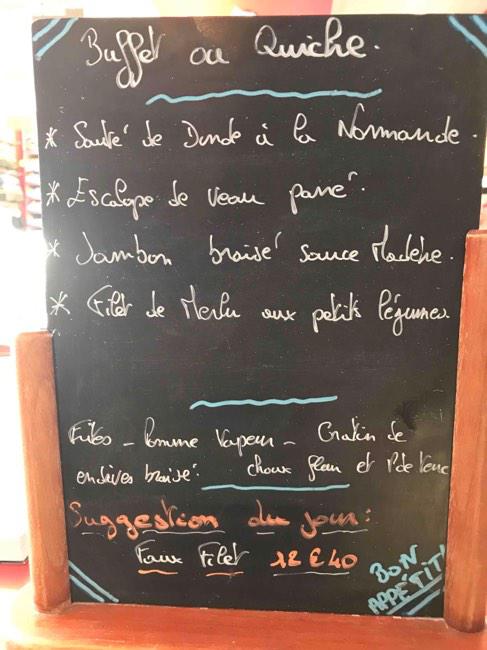 Buffet ou Quiche.
* Sauté de Dinde à la Normande.
* Escalope de Veau pané.
* Jambon braisé sauce Madère.
* Filet de Merlu aux petits légumes
Frites - Pomme Vapeur - Gratin de
endives braisé. choux fleur et P de terre
Suggestion du jour:
Faux Filet 12€40
BON
APPÉTIT!